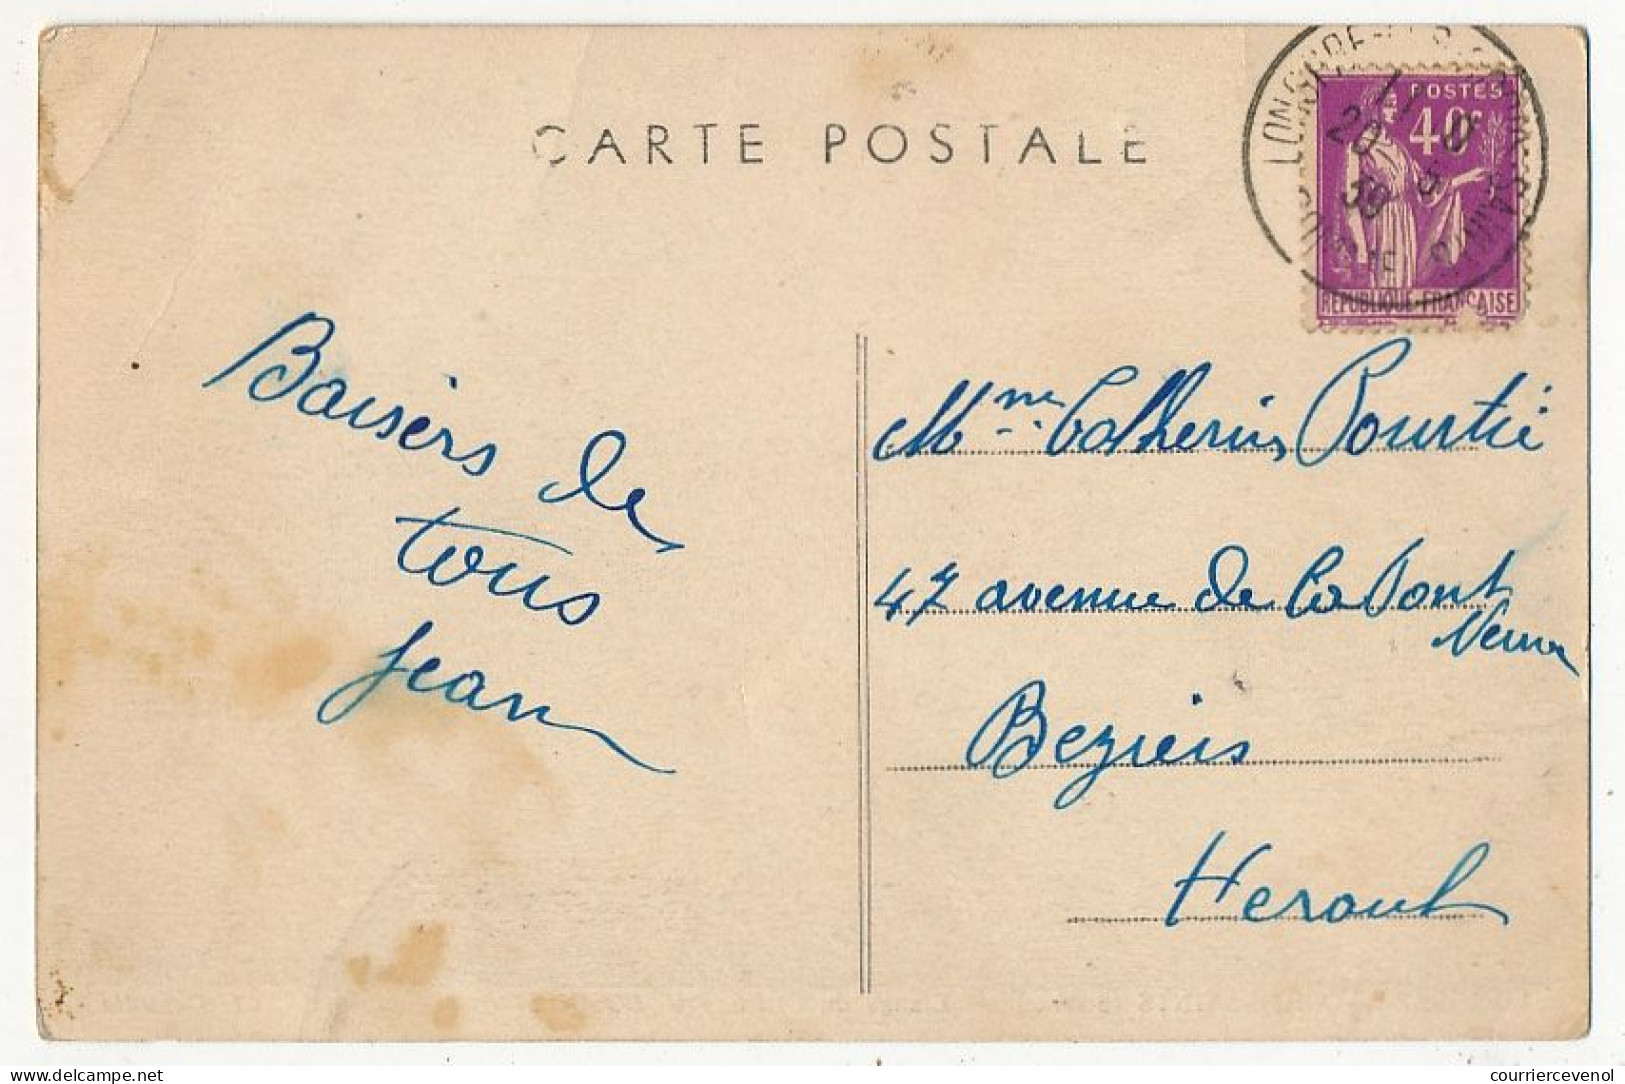 CARTE POSTALE
POSTES
40c
17 10
20 5
39
REPUBLIQUE-FRANÇAISE
Baisers de
tous
Jean
Mme Catherine Pourtié
47 avenue de
Pont
Beziers
Herault
delcampe.net
courriercevenol